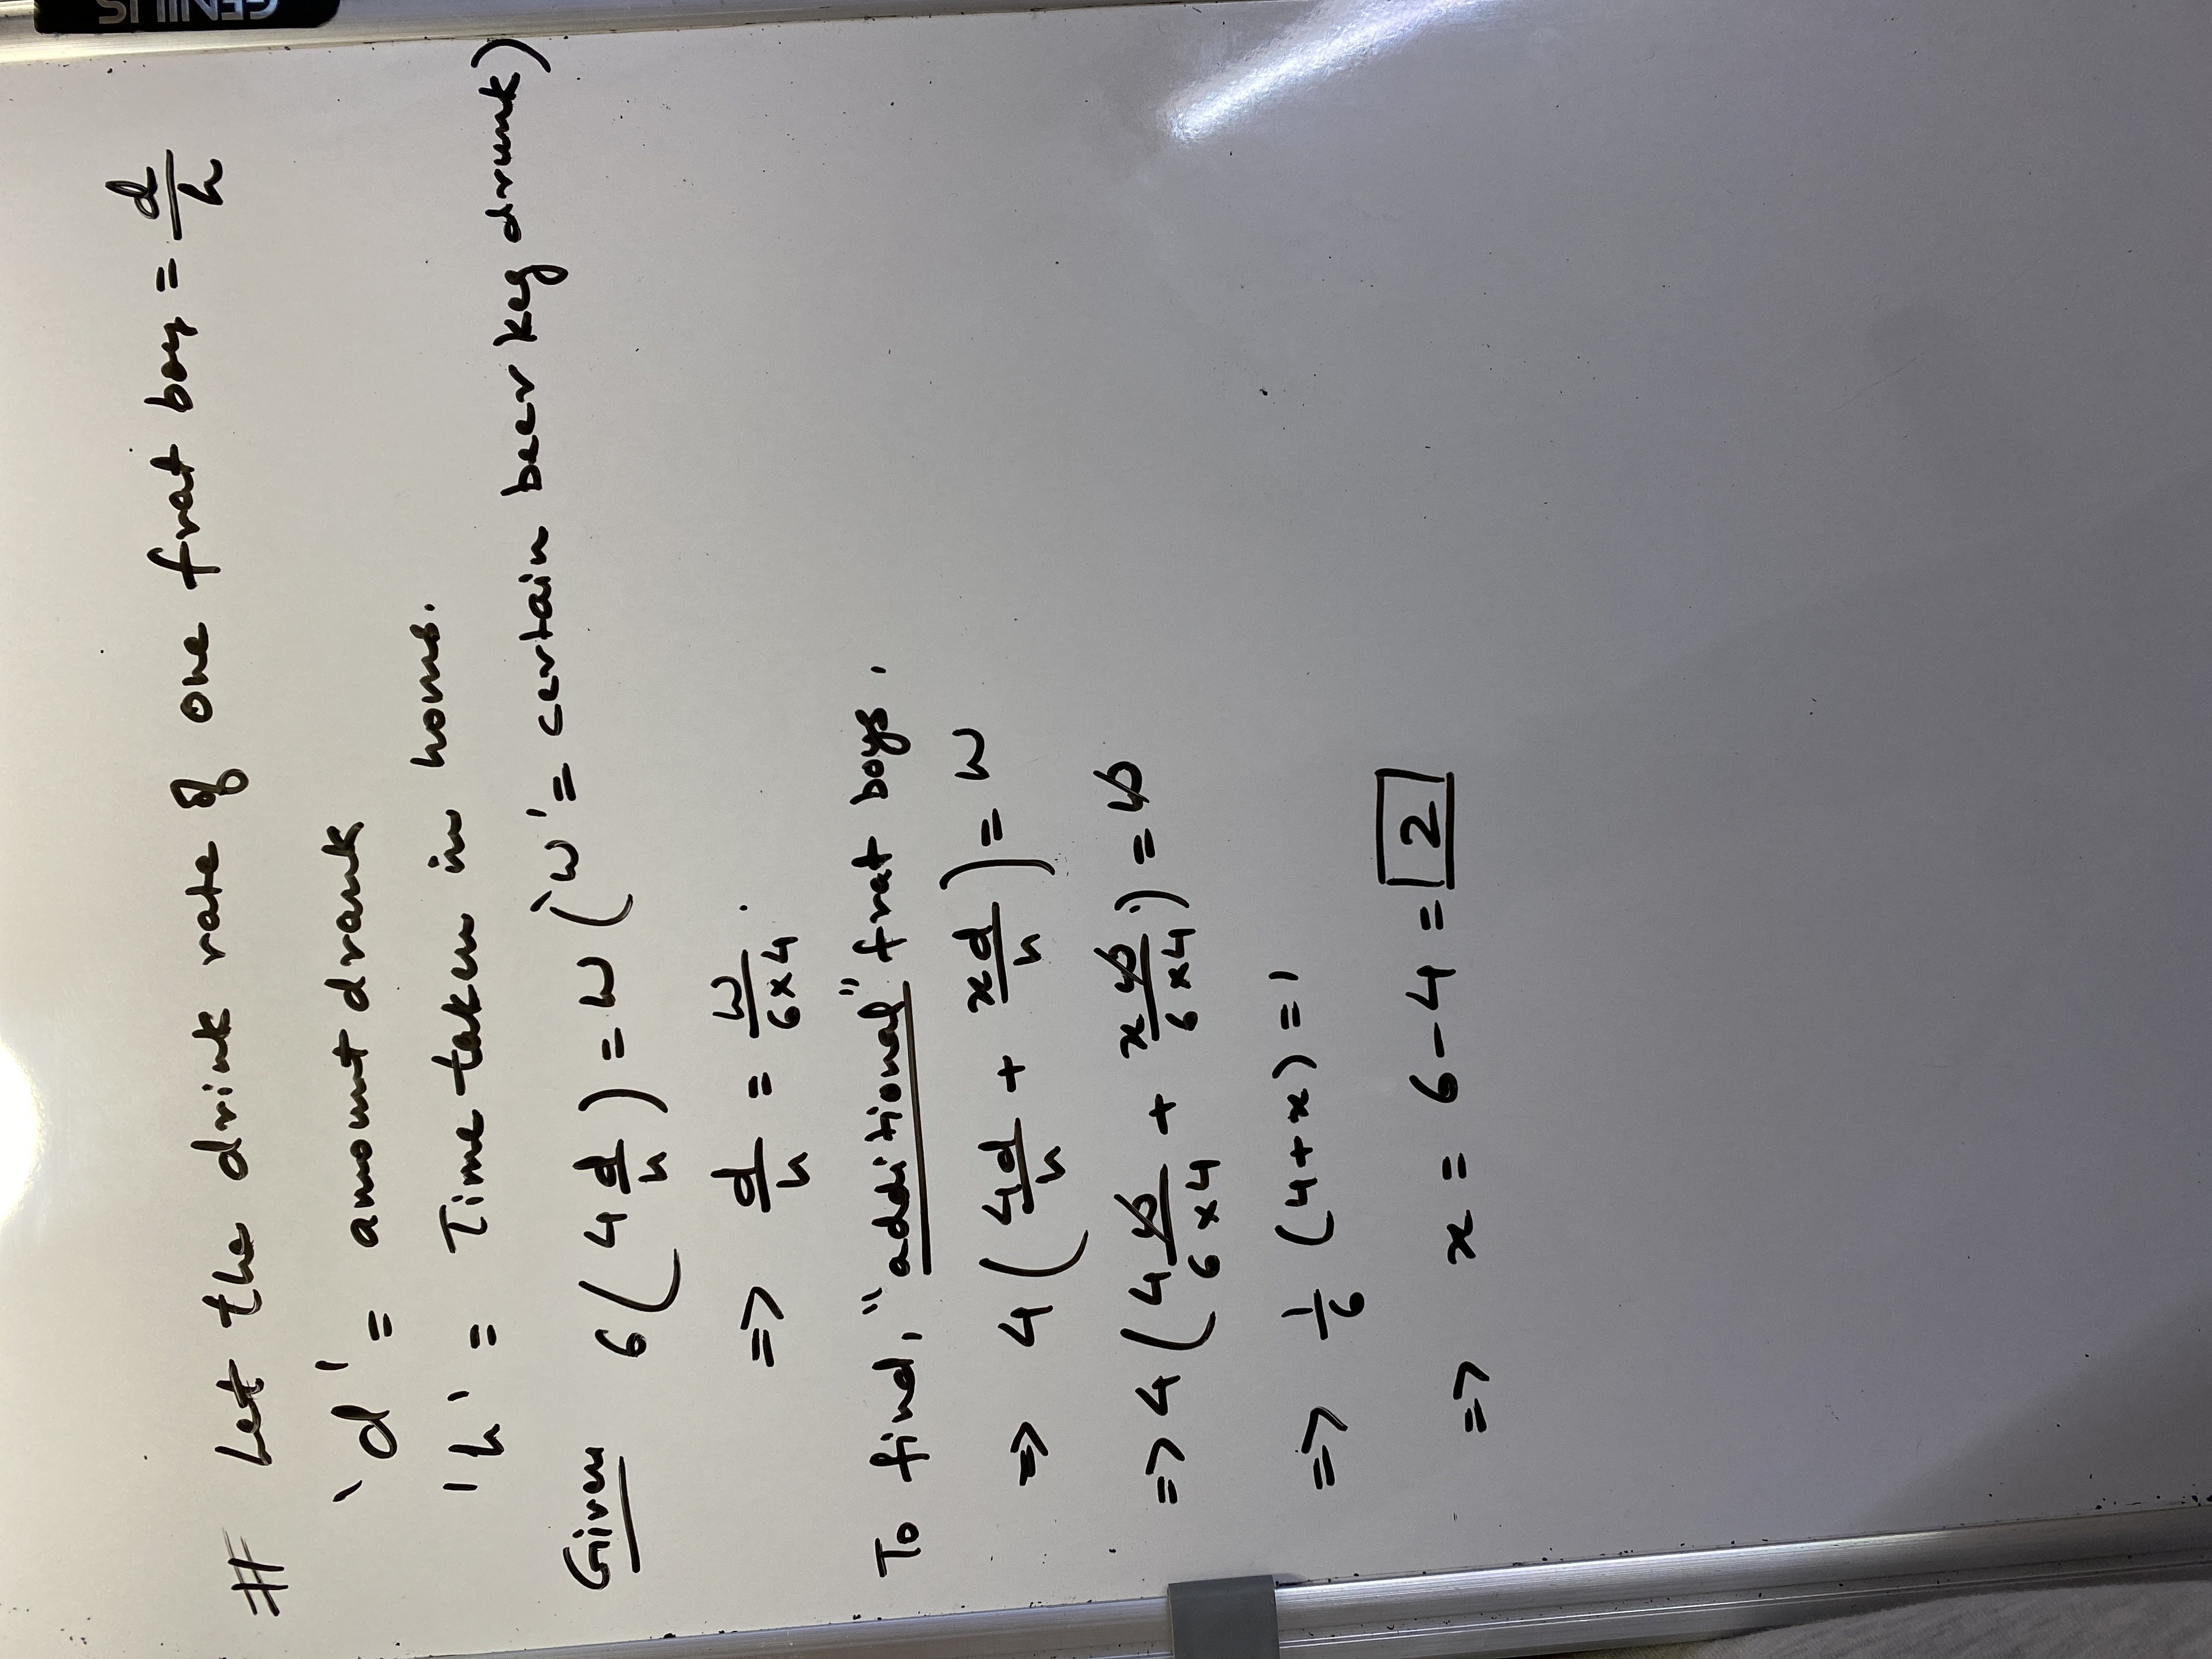 # Let the drink rate of one frat boy = d/h
'd' = amount drank
'h' = Time taken in hours.
Given 6(4 d/h) = W ('W' = certain beer keg drunk)
=> d/h = W/(6×4).
To find, "additional" frat boys.
=> 4(4d/h + xd/h) = W
=> 4(4W/(6×4) + xW/(6×4)) = W
=> 1/6 (4+x) = 1
=> x = 6-4 = 2
GENIUS